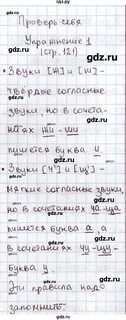 Проверь себя
Упражнение 1
(стр. 121)
• Звуки [ж] и [ш] -
твёрдые согласные
звуки, но в сочета-
ниях жи - ши
пишется буква и.
• Звуки [ч'] и [щ'] -
мягкие согласные звуки,
но в сочетаниях ча-ща
пишется буква а, а
в сочетаниях чу-щу -
буква у.
Эти правила надо
запомнить.